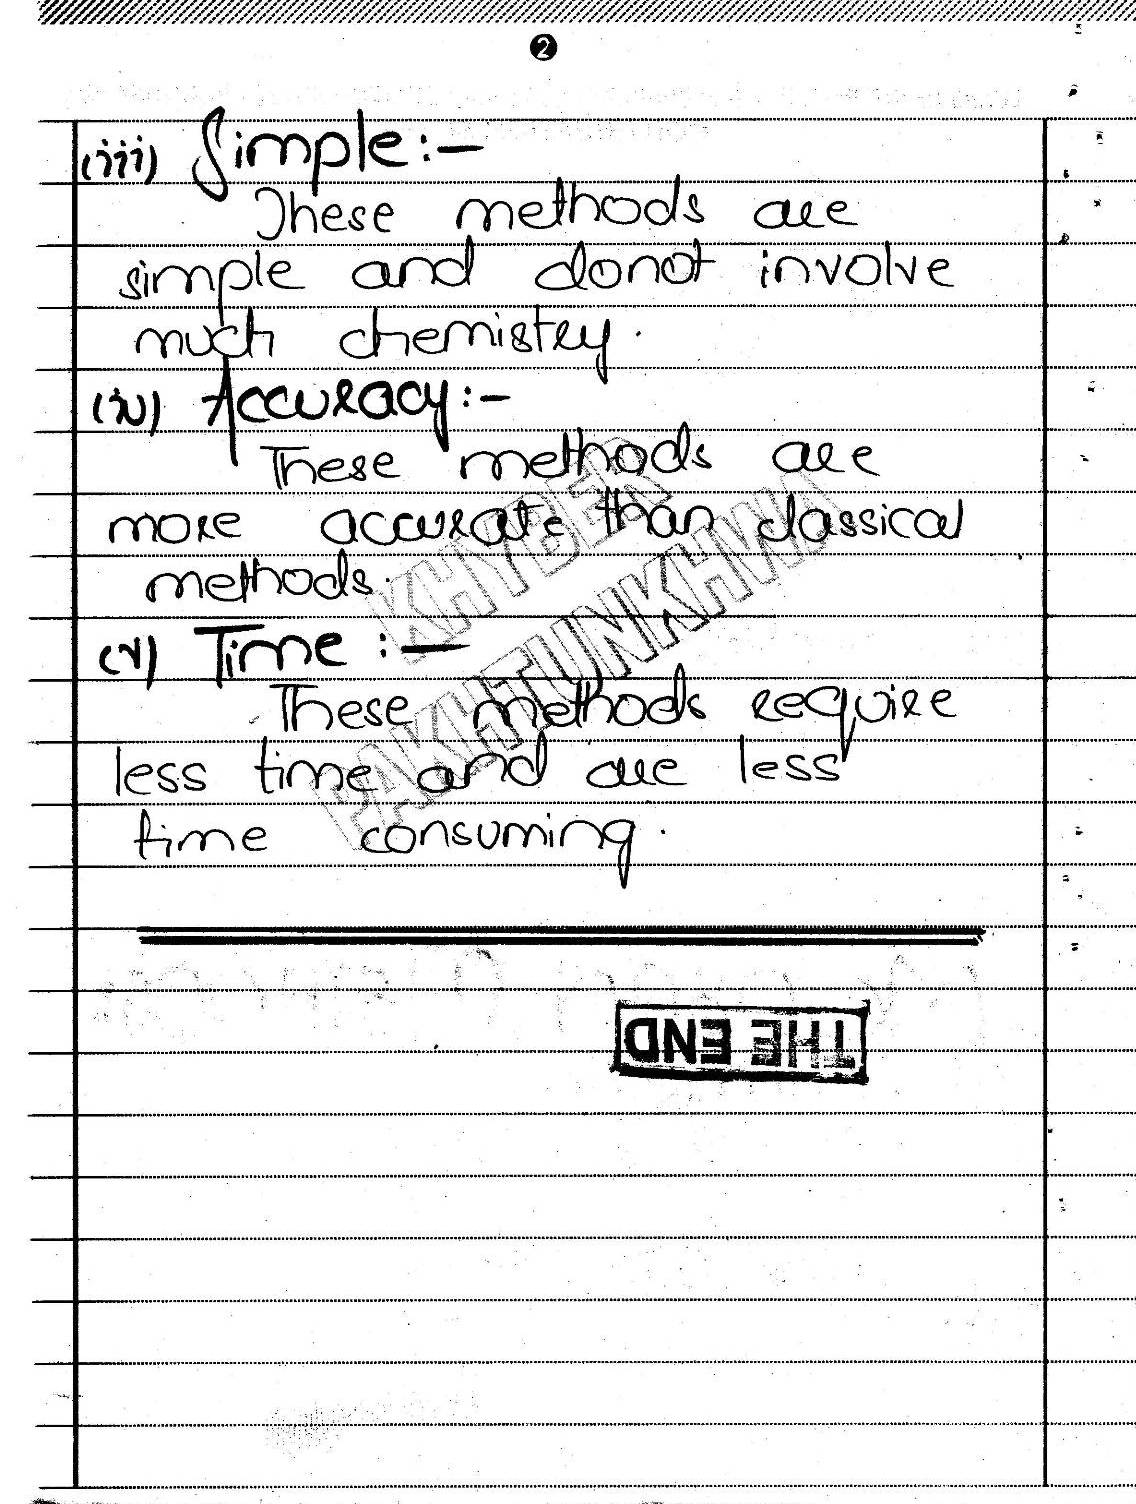 2
(iii) Simple:-
These methods are
simple and donot involve
much chemistry.
(iv) Accuracy:-
These methods are
more accurate than classical
methods.
KHYBER
PAKHTUNKHWA
(v) Time :-
These methods require
less time and are less
time consuming.
THE END